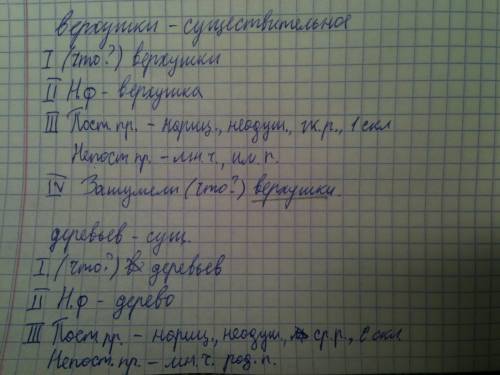 верхушки - существительное
I (что?) верхушки
II Н.ф - верхушка
III Пост.пр. - нариц., неодуш., ж.р., 1 скл
Непост.пр. - мн.ч., им.п.
IV Зашумели (что?) верхушки.
деревьев - сущ.
I. (что?) деревьев
II Н.ф - дерево
III Пост.пр. - нариц., неодуш., ср.р., 2 скл
Непост.пр. - мн.ч. род.п.